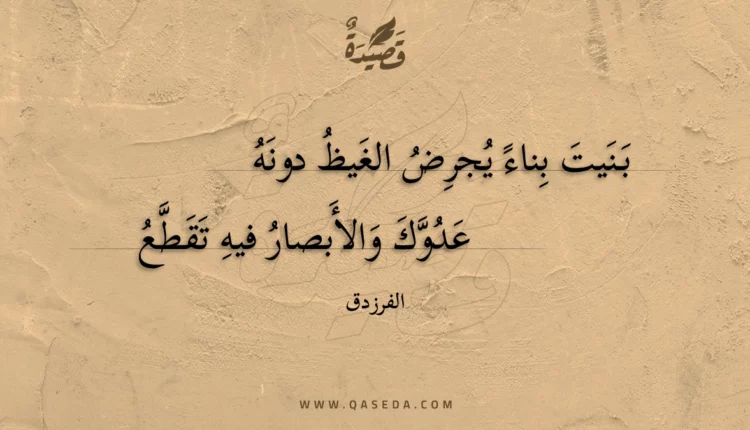 قَصِيدَةٌ
بَنَيتَ بِناءً يُجرِضُ الغَيظُ دونَهُ
عَدُوَّكَ وَالأَبصارُ فيهِ تَقَطَّعُ
الفرزدق
WWW.QASEDA.COM